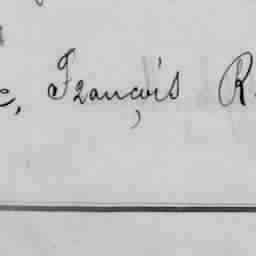 François R